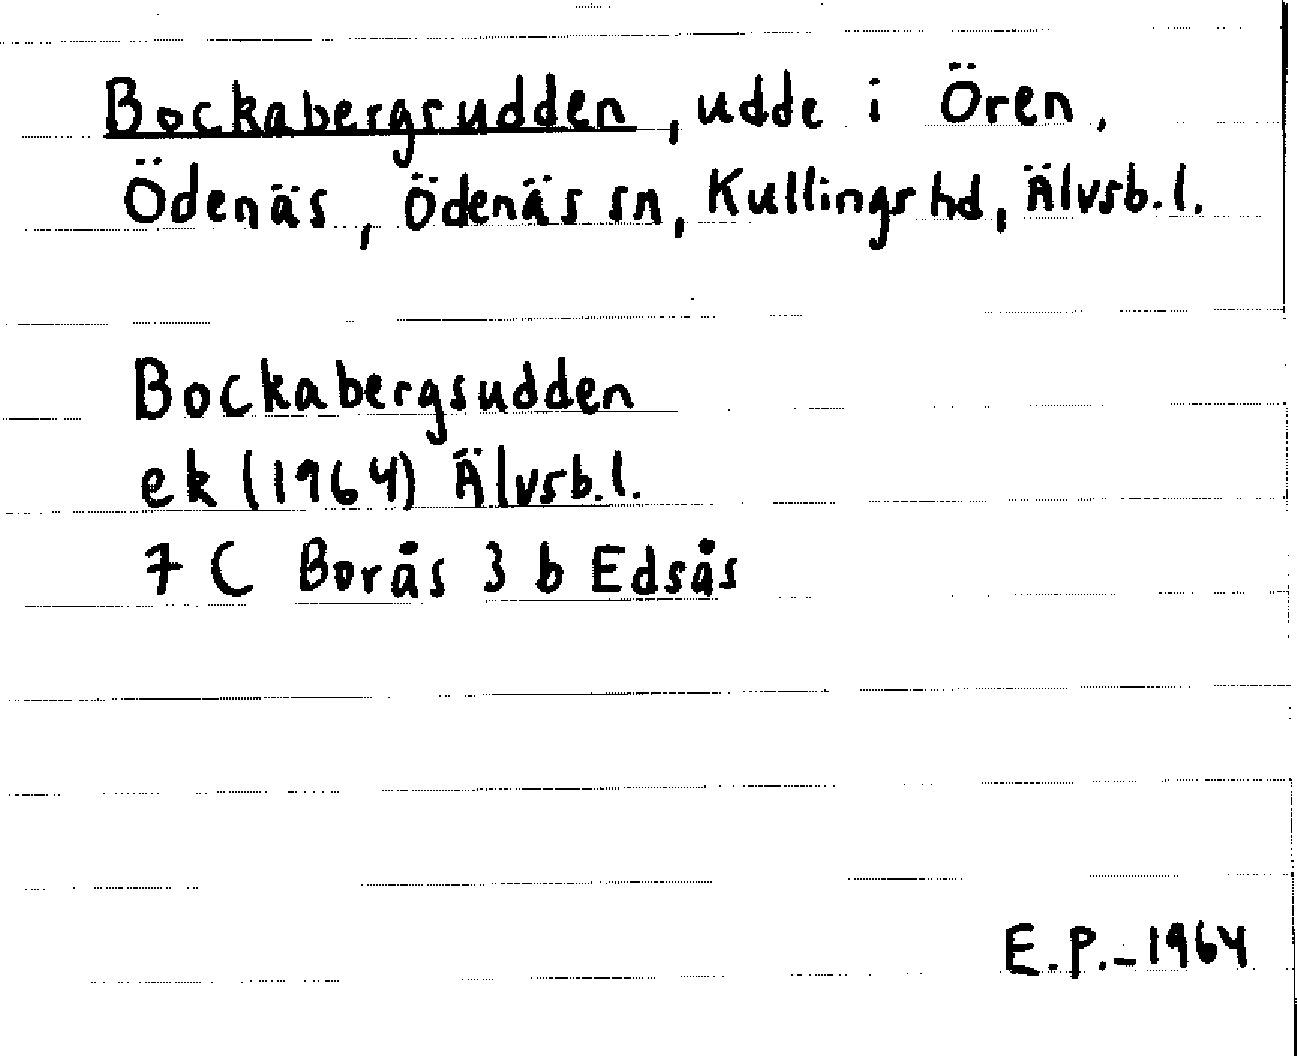 Bockabergsudden, udde i Ören,
Ödenäs, Ödenäs sn, Kullings hd, Älvsb.l.
Bockabergsudden
ek (1964) Älvsb.l.
7 C Borås 3 b Edsås
E.P.-1964